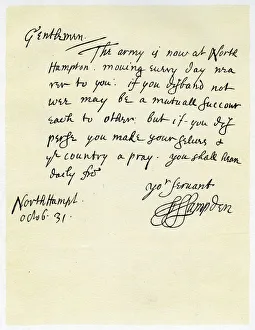 Gentlemen.
The army is now at North
Hampton. moving euery day nea
rer to you: if you disband not
wee may be a mutuall succour
each to other: but if you dis
perse you make your selues &
yr country a pray. you shall hear
daily fro
yor seruant
Hampden
NorthHampt.
octob. 31.